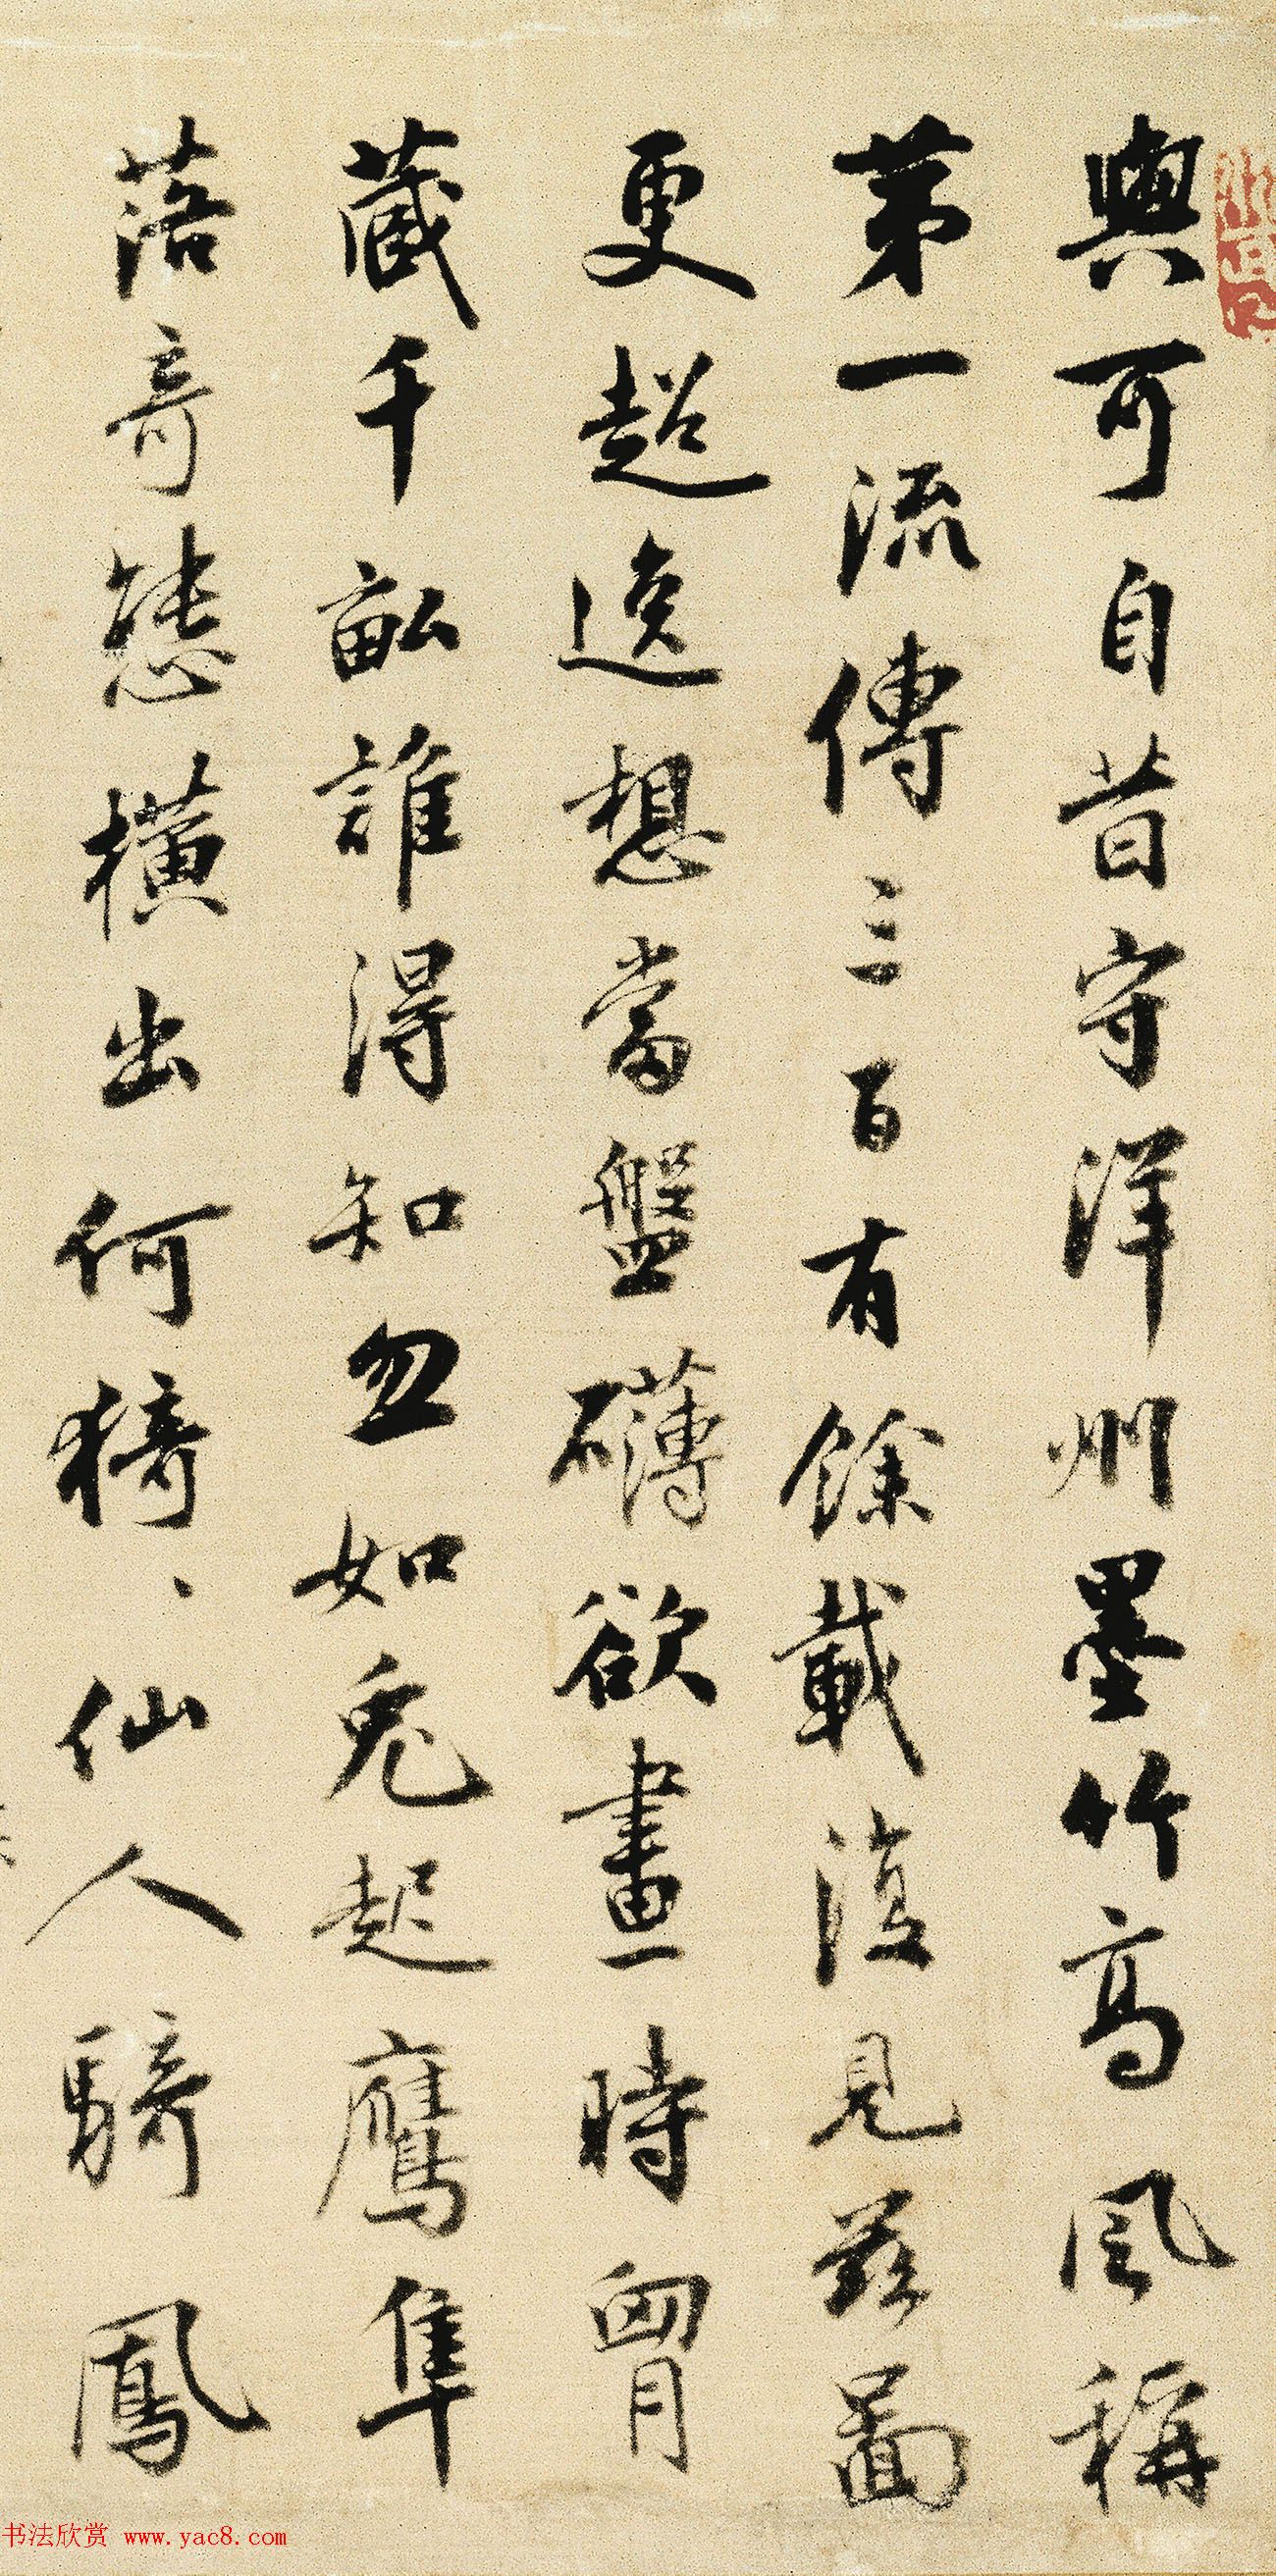 與可自昔守洋州墨竹高風稱
苐一流傳三百有餘載復見茲圖
更超逸想當盤礴欲畫時胷
藏千畝誰得知忽如兔起鷹隼
落奇態橫出何猗猗仙人騎鳳
书法欣赏 www.yac8.com